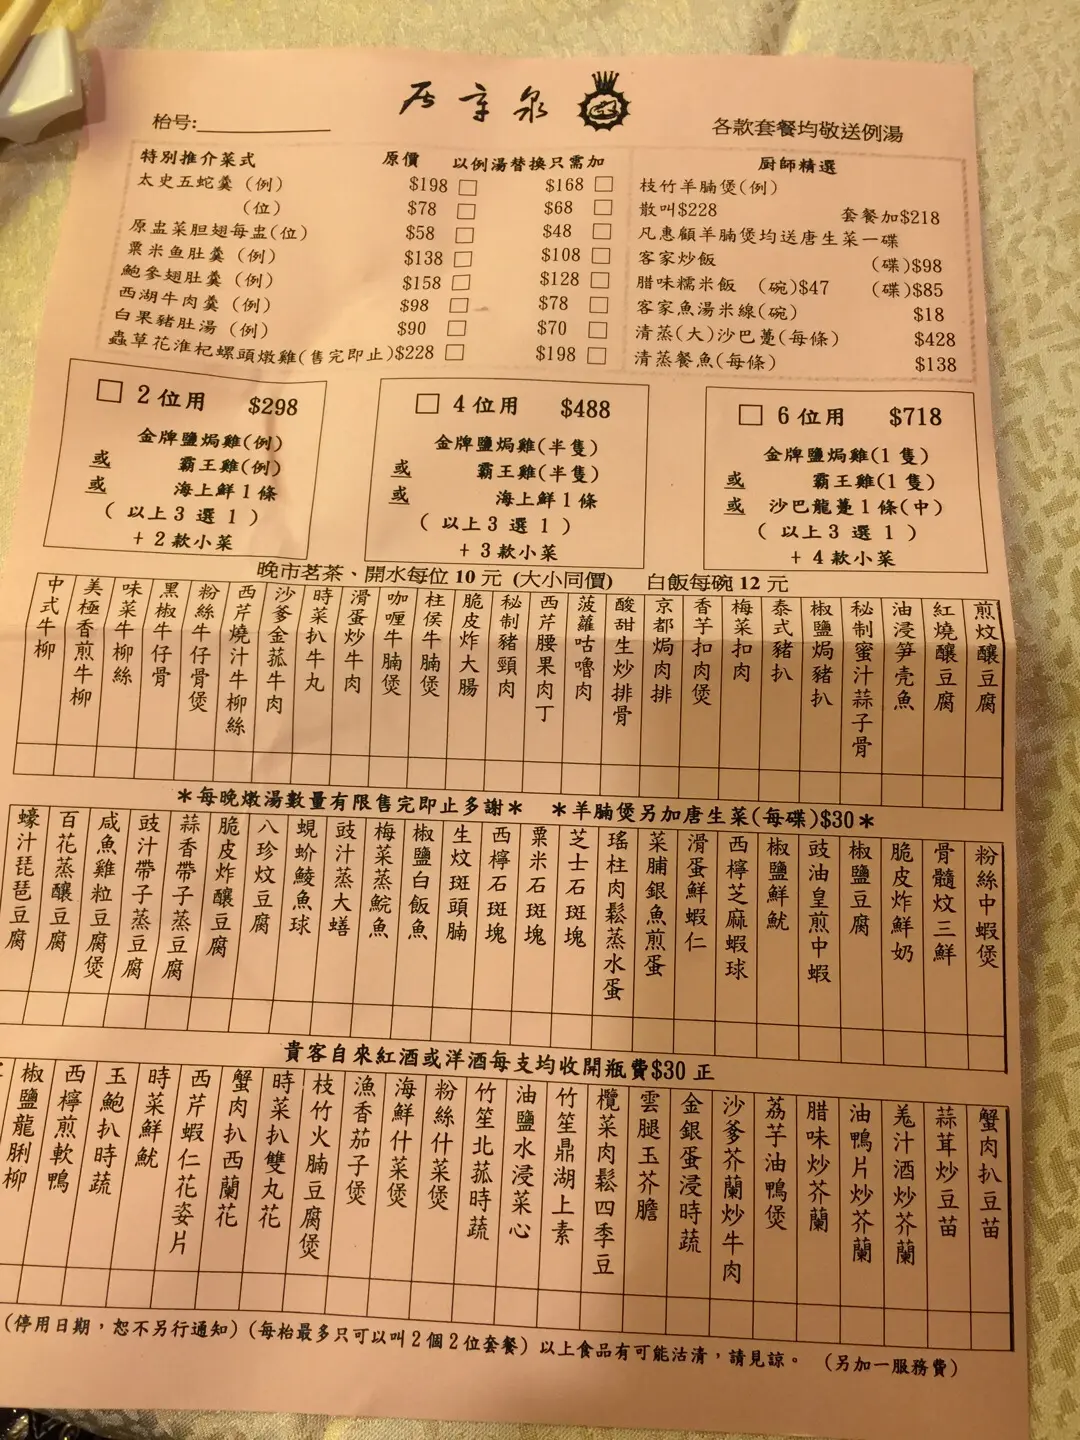 居章泉
枱号:
各款套餐均敬送例湯
特別推介菜式 原價 以例湯替換只需加
太史五蛇羹(例) $198 □ $168 □
(位) $78 □ $68 □
原盅菜胆翅每盅(位) $58 □ $48 □
粟米魚肚羹(例) $138 □ $108 □
鮑參翅肚羹(例) $158 □ $128 □
西湖牛肉羹(例) $98 □ $78 □
白果豬肚湯(例) $90 □ $70 □
蟲草花淮杞螺頭燉雞(售完即止)$228 □ $198 □
厨師精選
枝竹羊腩煲(例)
散叫$228 套餐加$218
凡惠顧羊腩煲均送唐生菜一碟
客家炒飯 (碟)$98
腊味糯米飯 (碗)$47 (碟)$85
客家魚湯米線(碗) $18
清蒸(大)沙巴躉(每條) $428
清蒸餐魚(每條) $138
□ 2位用 $298
金牌鹽焗雞(例)
或 霸王雞(例)
或 海上鮮1條
(以上3選1)
+2款小菜
□ 4位用 $488
金牌鹽焗雞(半隻)
或 霸王雞(半隻)
或 海上鮮1條
(以上3選1)
+3款小菜
□ 6位用 $718
金牌鹽焗雞(1隻)
或 霸王雞(1隻)
或 沙巴龍躉1條(中)
(以上3選1)
+4款小菜
晚市茗茶、開水每位10元(大小同價) 白飯每碗12元
煎炆釀豆腐
紅燒釀豆腐
油浸笋壳魚
秘制蜜汁蒜子骨
椒鹽焗豬扒
泰式豬扒
梅菜扣肉
香芋扣肉煲
京都焗肉排
酸甜生炒排骨
菠蘿咕嚕肉
西芹腰果肉丁
秘制豬頸肉
脆皮炸大腸
柱侯牛腩煲
咖喱牛腩煲
滑蛋炒牛肉
時菜扒牛丸
沙爹金菰牛肉
西芹燒汁牛柳絲
粉絲牛仔骨煲
黑椒牛仔骨
味菜牛柳絲
美極香煎牛柳
中式牛柳
*每晚燉湯數量有限售完即止多謝* *羊腩煲另加唐生菜(每碟)$30*
粉絲中蝦煲
骨髓炆三鮮
脆皮炸鮮奶
椒鹽豆腐
豉油皇煎中蝦
椒鹽鮮魷
西檸芝麻蝦球
滑蛋鮮蝦仁
菜脯銀魚煎蛋
瑤柱肉鬆蒸水蛋
芝士石斑塊
粟米石斑塊
西檸石斑塊
生炆斑頭腩
椒鹽白飯魚
梅菜蒸鯇魚
豉汁蒸大鱔
蜆蚧鯪魚球
八珍炆豆腐
脆皮炸釀豆腐
蒜香帶子蒸豆腐
豉汁帶子蒸豆腐
咸魚雞粒豆腐煲
百花蒸釀豆腐
蠔汁琵琶豆腐
貴客自來紅酒或洋酒每支均收開瓶費$30正
蟹肉扒豆苗
蒜茸炒豆苗
羗汁酒炒芥蘭
油鴨片炒芥蘭
腊味炒芥蘭
荔芋油鴨煲
沙爹芥蘭炒牛肉
金銀蛋浸時蔬
雲腿玉芥膽
欖菜肉鬆四季豆
竹笙鼎湖上素
油鹽水浸菜心
竹笙北菰時蔬
粉絲什菜煲
海鮮什菜煲
漁香茄子煲
枝竹火腩豆腐煲
時菜扒雙丸花
蟹肉扒西蘭花
西芹蝦仁花姿片
時菜鮮魷
玉鮑扒時蔬
西檸煎軟鴨
椒鹽龍脷柳
(停用日期，恕不另行通知)(每枱最多只可以叫2個2位套餐)以上食品有可能沽清，請見諒。 (另加一服務費)